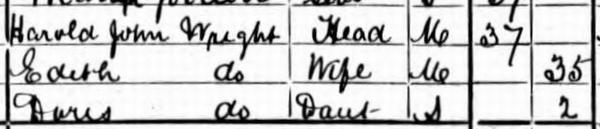 Harold John Wright Head M 37
Edith do Wife M 35
Doris do Daut S 2